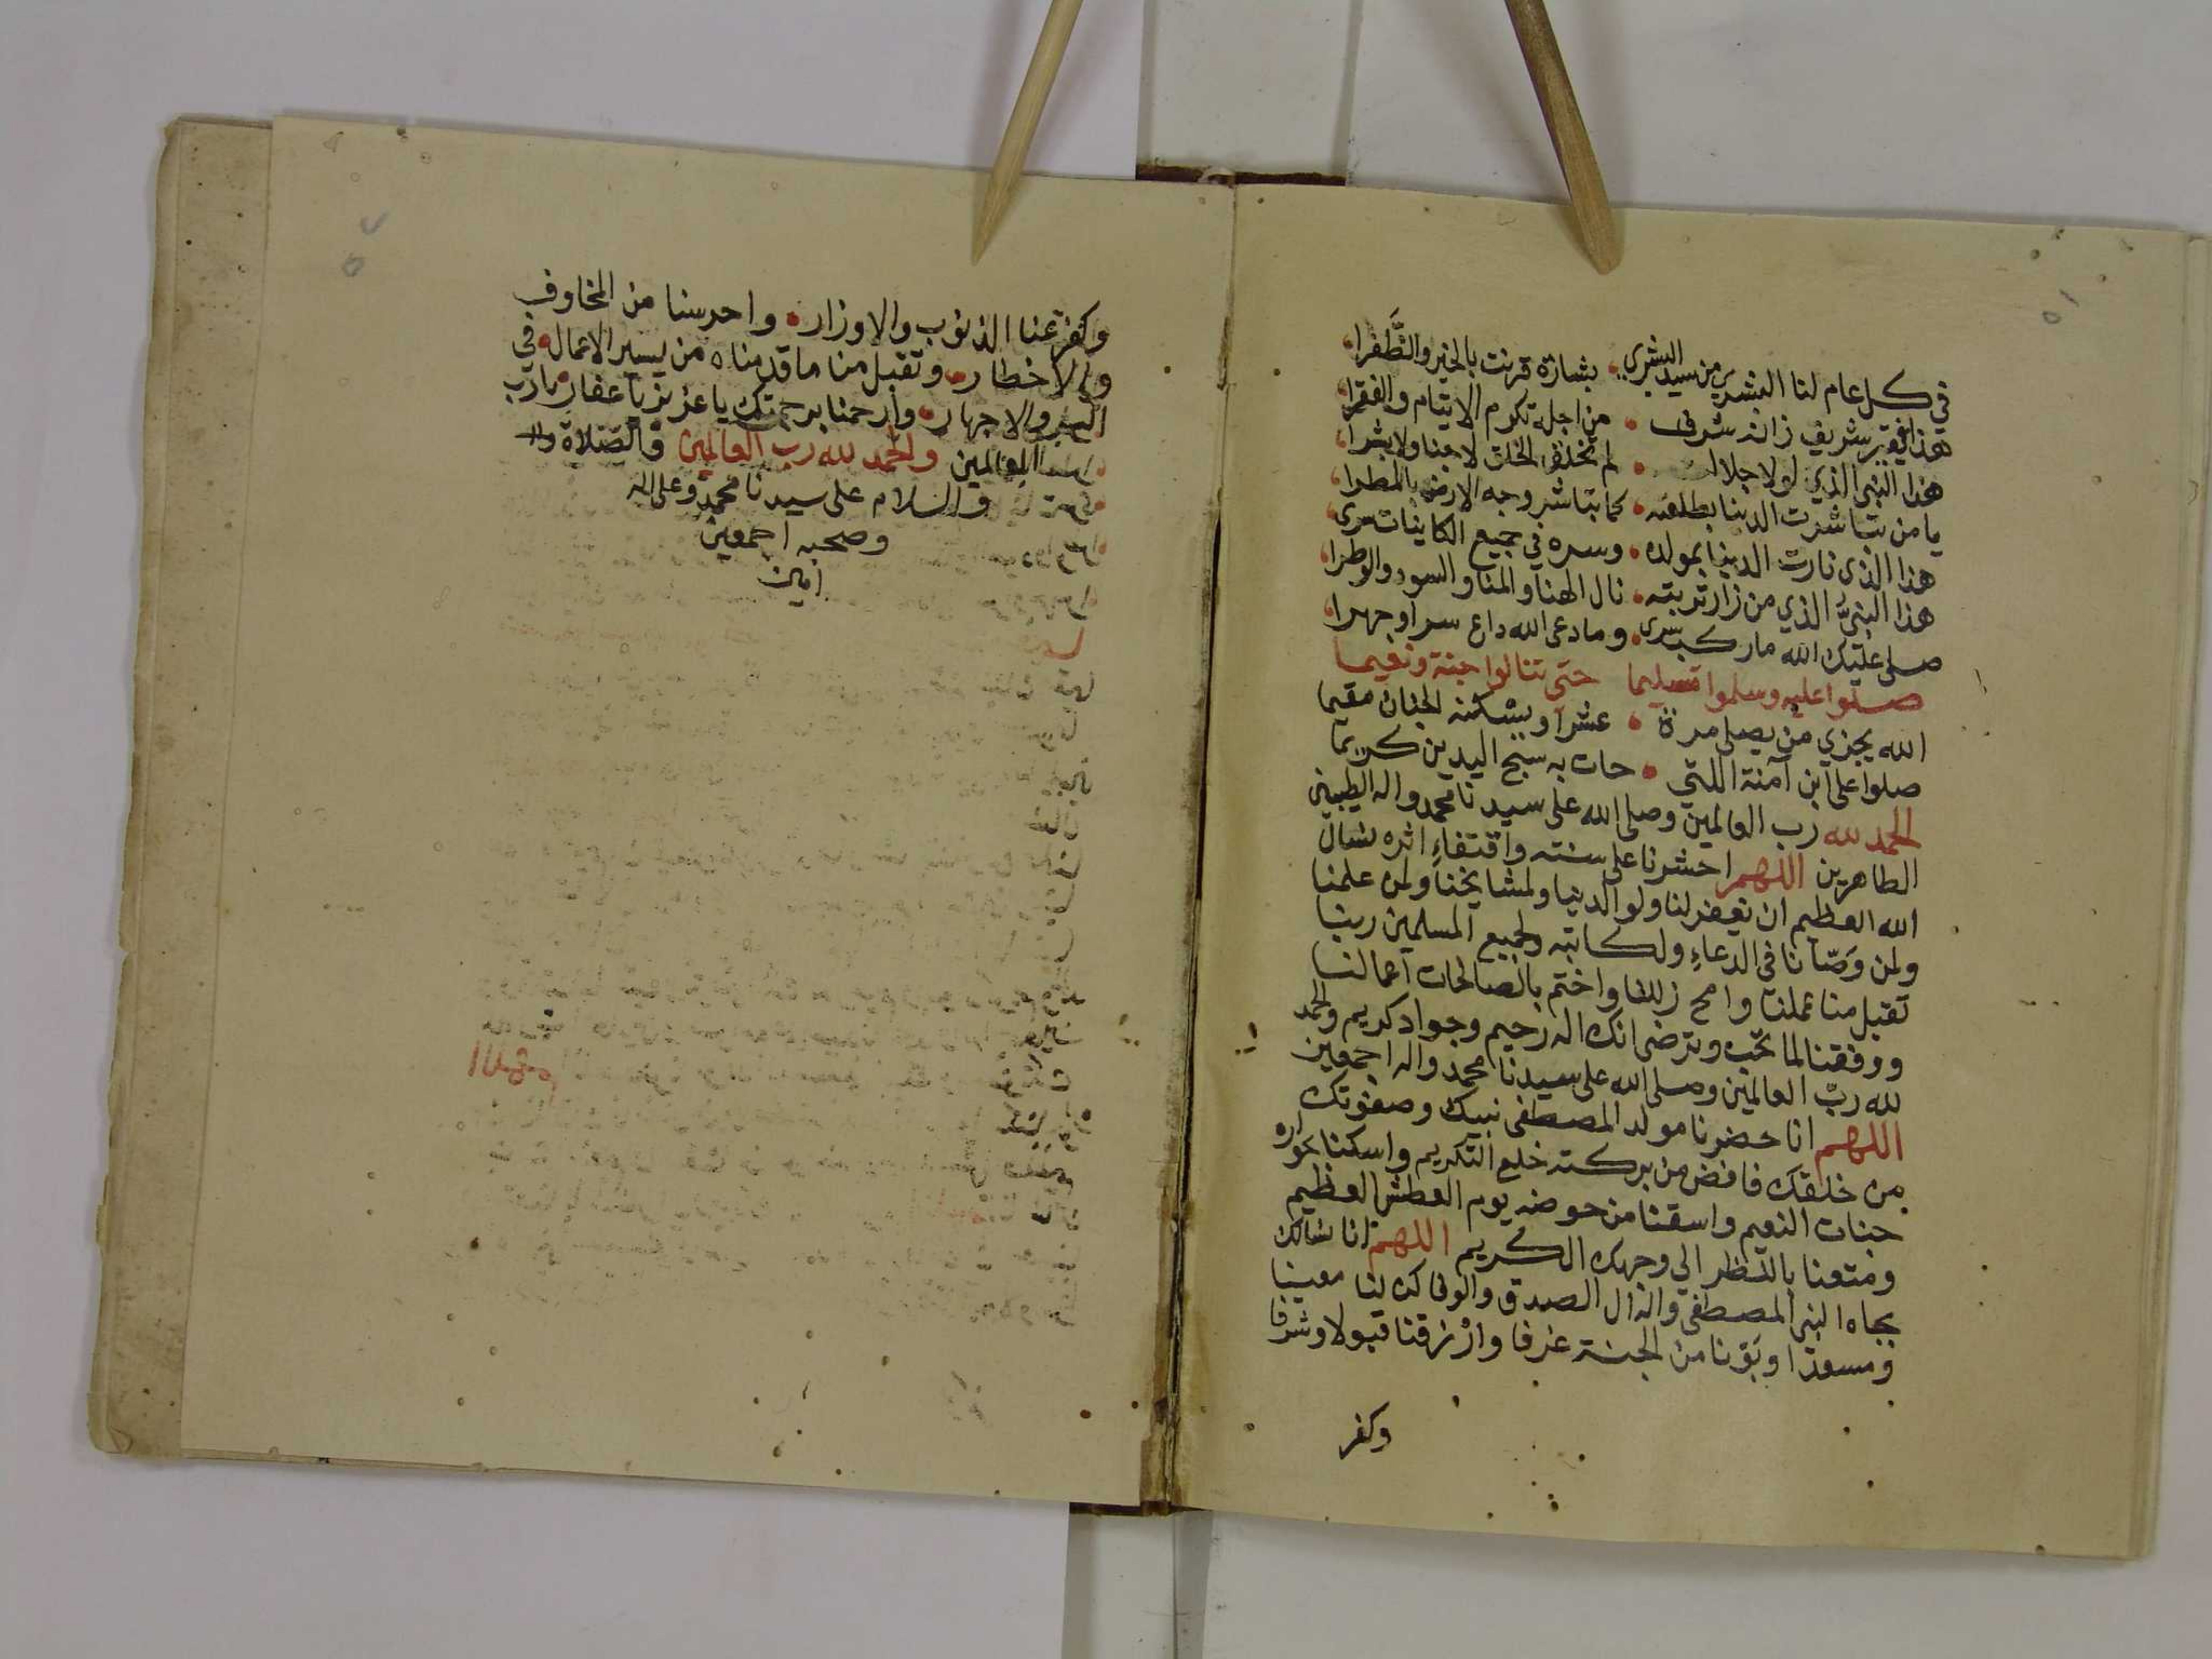 في كل عام لنا البشرى من سيد البشرى • بشارة قرنت بالخير والظفرا
هذا فقير شريف زانه شرف • من اجله تكرم الايتام والفقرا
هذا النبي الذي لولا جلالا • لم تخلق الخلق لا جنا ولا بشرا
يا من تباشرت الدنيا بطلعته • كما تباشر وجه الارض بالمطرا
هذا الذي نارت الدنيا بمولده • وسره في جميع الكاينات سرى
هذا النبي الذي من زار تربته • نال الهنا والمنا والسود والوطرا
صلى عليك الله ما ركب سرى • وما دعى الله داع سرا وجهرا
صلوا عليه وسلموا تسليما حتى تنالوا جنة ونعيما
الله يجزي من يصلى مرة • عشرا ويسكنه الجنان مقيما
صلوا على ابن آمنة اللتي • جات به سبح اليدين كريما
الحمد لله رب العالمين وصلى الله على سيدنا محمد واله الطيبين
الطاهرين اللهم احشرنا على سنته واقتفاء اثره نسال
الله العظيم ان يغفر لنا ولوالدينا ولمشايخنا ولمن علمنا
ولمن وصّانا في الدعاء ولكاتبه ولجميع المسلمين ربنا
تقبل منا عملنا وامح زللنا واختم بالصالحات اعمالنا
ووفقنا لما تحب وترضى انك اله رحيم وجواد كريم والحمد
لله رب العالمين وصلى الله على سيدنا محمد واله اجمعين
اللهم انا حضرنا مولد المصطفى نبيك وصفوتك
من خلقك فافض من بركته خلع التكريم واسكنا بجواره
جنات النعيم واسقنا من حوضه يوم العطش العظيم
ومتعنا بالنظر الي وجهك الكريم اللهم انا نسالك
بجاه النبي المصطفى واله ال الصدق والوفا كن لنا معينا
ومسعدا وبوّنا من الجنة غرفا وارزقنا قبولا وشرفا
وكفر
وكفر عنا الذنوب والاوزار • واحرسنا من المخاوف
والاخطار • وتقبل منا ما قدمناه من يسير الاعمال في
السر والاجهار • وارحمنا برحمتك يا عزيز يا غفار يا رب
العالمين والحمد لله رب العالمين والصلاة
والسلام على سيدنا محمد وعلى اله
وصحبه اجمعين
امين